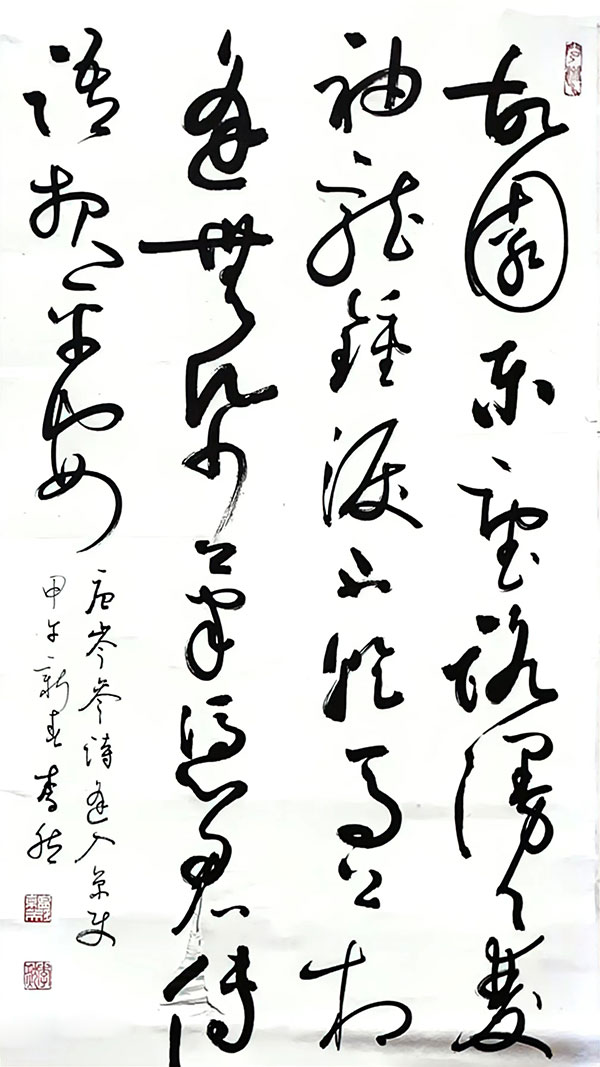 故園東望路漫漫雙
袖龍鍾淚不乾馬上相
逢無紙筆憑君傳
語報平安
唐岑參詩逢入京使
甲午新春李然